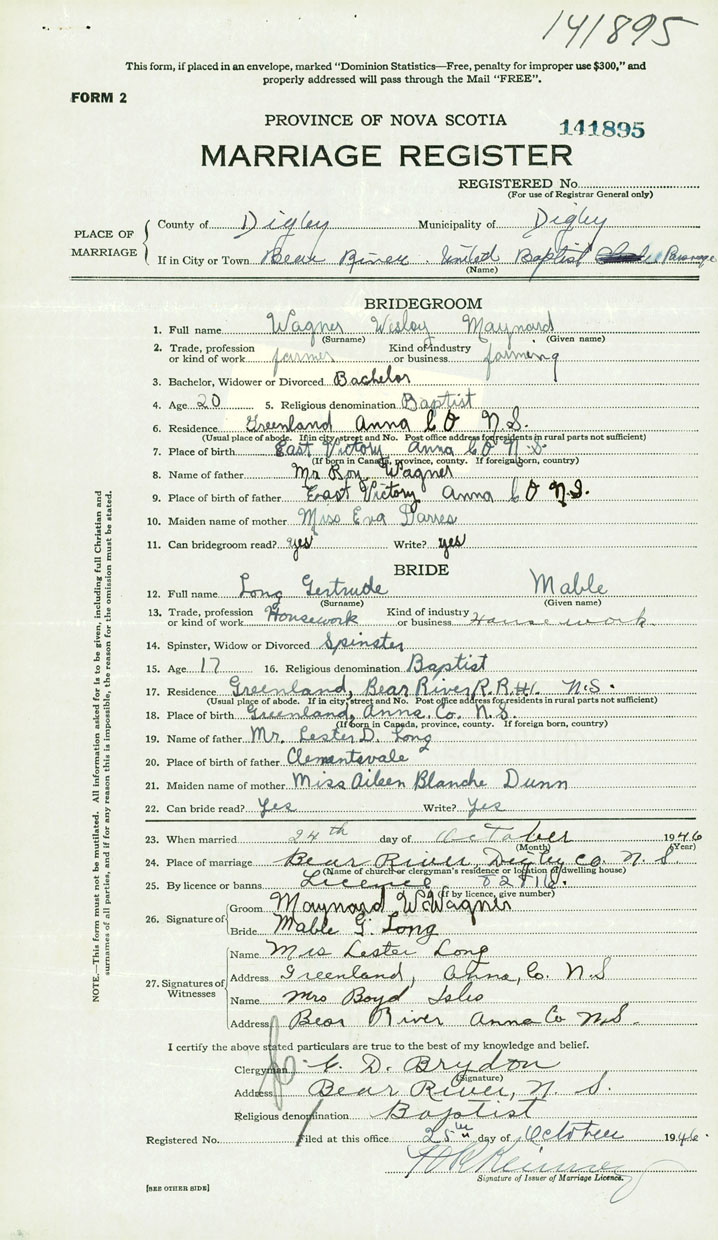 141895
This form, if placed in an envelope, marked "Dominion Statistics—Free, penalty for improper use $300," and
properly addressed will pass through the Mail "FREE".
FORM 2
PROVINCE OF NOVA SCOTIA
141895
MARRIAGE REGISTER
REGISTERED No.
(For use of Registrar General only)
PLACE OF MARRIAGE
County of Digby Municipality of Digby
If in City or Town Bear River. United Baptist Parsonage
(Name)
BRIDEGROOM
1. Full name Wagner Wesley Maynard
(Surname) (Given name)
2. Trade, profession or kind of work farmer Kind of industry or business farming
3. Bachelor, Widower or Divorced Bachelor
4. Age 20 5. Religious denomination Baptist
6. Residence Greenland Anna Co N.S.
(Usual place of abode. If in city street and No. Post office address for residents in rural parts not sufficient)
7. Place of birth East Victory Anna Co N.S.
(If born in Canada, province, county. If foreign born, country)
8. Name of father Mr Roy Wagner
9. Place of birth of father East Victory Anna Co N.S.
10. Maiden name of mother Miss Eva Darres
11. Can bridegroom read? yes Write? yes
BRIDE
12. Full name Long Gertrude Mable
(Surname) (Given name)
13. Trade, profession or kind of work Housework Kind of industry or business Housework
14. Spinster, Widow or Divorced Spinster
15. Age 17 16. Religious denomination Baptist
17. Residence Greenland, Bear River R.R.#1. N.S.
(Usual place of abode. If in city, street and No. Post office address for residents in rural parts not sufficient)
18. Place of birth Greenland, Anna. Co. N.S.
(If born in Canada, province, county. If foreign born, country)
19. Name of father Mr. Lester D. Long
20. Place of birth of father Clementsvale
21. Maiden name of mother Miss Aileen Blanche Dunn
22. Can bride read? Yes Write? Yes
23. When married 24th day of October 1946
(Month) (Year)
24. Place of marriage Bear River, Digby Co. N. S.
(Name of church or clergyman's residence or location of dwelling house)
25. By licence or banns Licence
(If by licence, give number)
26. Signature of
Groom Maynard W. Wagner
Bride Mable G. Long
27. Signatures of Witnesses
Name Mrs Lester Long
Address Greenland, Anna, Co. N.S
Name Mrs Boyd Isles
Address Bear River Anna Co N.S.
I certify the above stated particulars are true to the best of my knowledge and belief.
Clergyman G. D. Brydon
(Signature)
Address Bear River, N. S.
Religious denomination Baptist
Registered No. Filed at this office 25th day of October 1946.
Signature of Issuer of Marriage Licence.
[SEE OTHER SIDE]
NOTE.—This form must not be mutilated. All information asked for is to be given, including full Christian and
surnames of all parties, and if for any reason this is impossible, the reason for the omission must be stated.